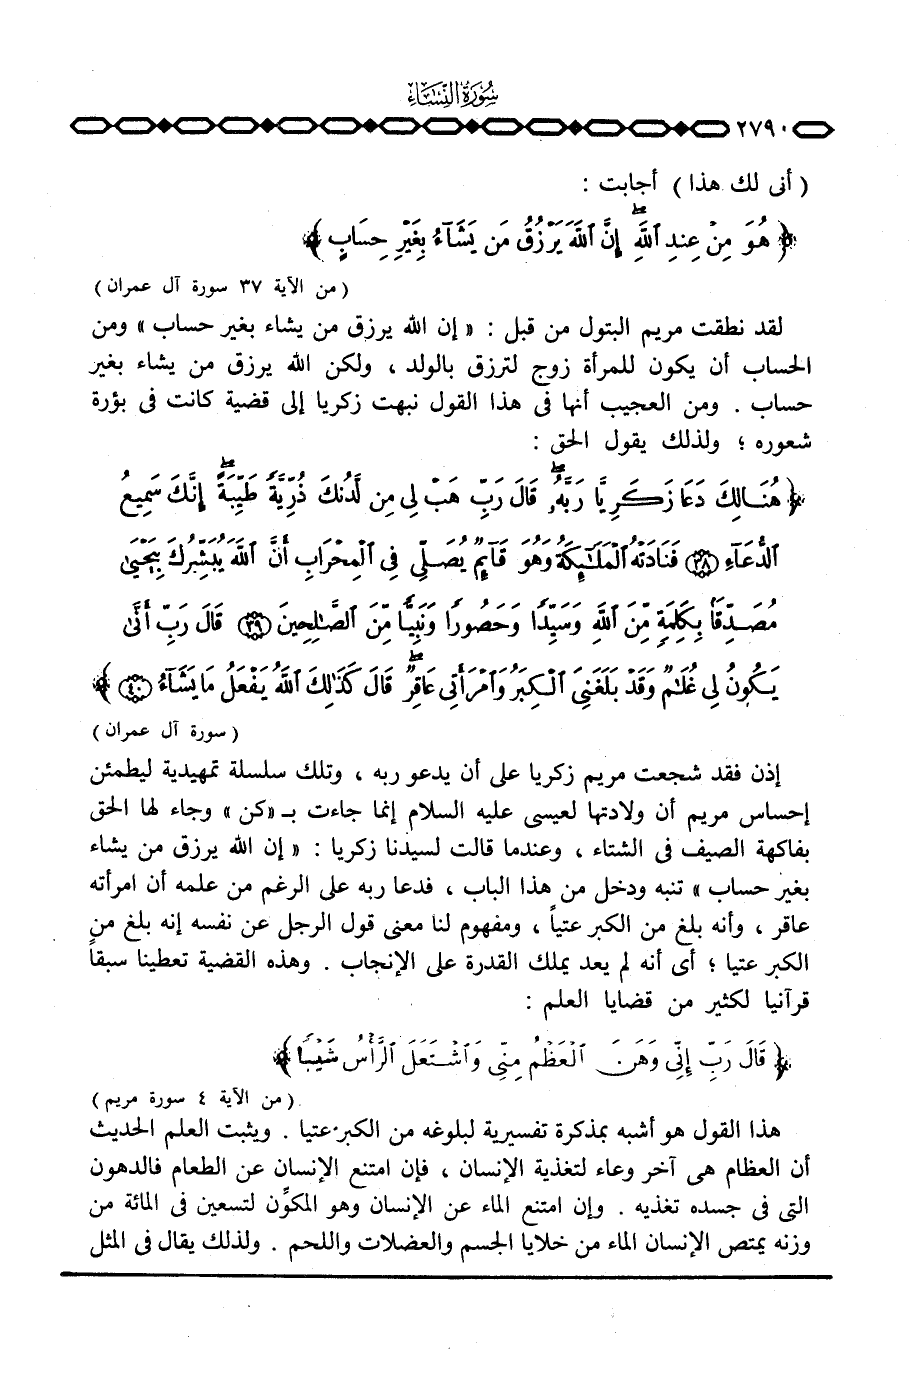 سُورَةُ النِّسَاءِ
٢٧٩٠
( أنى لك هذا ) أجابت :
﴿ هُوَ مِنْ عِندِ ٱللَّهِ ۖ إِنَّ ٱللَّهَ يَرْزُقُ مَن يَشَآءُ بِغَيْرِ حِسَابٍ ﴾
( من الآية ٣٧ سورة آل عمران )
لقد نطقت مريم البتول من قبل : « إن الله يرزق من يشاء بغير حساب » ومن
الحساب أن يكون للمرأة زوج لترزق بالولد ، ولكن الله يرزق من يشاء بغير
حساب . ومن العجيب أنها فى هذا القول نبهت زكريا إلى قضية كانت فى بؤرة
شعوره ؛ ولذلك يقول الحق :
﴿ هُنَالِكَ دَعَا زَكَرِيَّا رَبَّهُۥ ۖ قَالَ رَبِّ هَبْ لِى مِن لَّدُنكَ ذُرِّيَّةً طَيِّبَةً ۖ إِنَّكَ سَمِيعُ
ٱلدُّعَآءِ ﴿٣٨﴾ فَنَادَتْهُ ٱلْمَلَٰٓئِكَةُ وَهُوَ قَآئِمٌ يُصَلِّى فِى ٱلْمِحْرَابِ أَنَّ ٱللَّهَ يُبَشِّرُكَ بِيَحْيَىٰ
مُصَدِّقًۢا بِكَلِمَةٍ مِّنَ ٱللَّهِ وَسَيِّدًا وَحَصُورًا وَنَبِيًّا مِّنَ ٱلصَّٰلِحِينَ ﴿٣٩﴾ قَالَ رَبِّ أَنَّىٰ
يَكُونُ لِى غُلَٰمٌ وَقَدْ بَلَغَنِىَ ٱلْكِبَرُ وَٱمْرَأَتِى عَاقِرٌ ۖ قَالَ كَذَٰلِكَ ٱللَّهُ يَفْعَلُ مَا يَشَآءُ ﴿٤٠﴾ ﴾
( سورة آل عمران )
إذن فقد شجعت مريم زكريا على أن يدعو ربه ، وتلك سلسلة تمهيدية ليطمئن
إحساس مريم أن ولادتها لعيسى عليه السلام إنما جاءت بـ «كن » وجاء لها الحق
بفاكهة الصيف فى الشتاء ، وعندما قالت لسيدنا زكريا : « إن الله يرزق من يشاء
بغير حساب » تنبه ودخل من هذا الباب ، فدعا ربه على الرغم من علمه أن امرأته
عاقر ، وأنه بلغ من الكبر عتياً ، ومفهوم لنا معنى قول الرجل عن نفسه إنه بلغ من
الكبر عتيا ؛ أى أنه لم يعد يملك القدرة على الإنجاب . وهذه القضية تعطينا سبقاً
قرآنيا لكثير من قضايا العلم :
﴿ قَالَ رَبِّ إِنِّى وَهَنَ ٱلْعَظْمُ مِنِّى وَٱشْتَعَلَ ٱلرَّأْسُ شَيْبًا ﴾
( من الآية ٤ سورة مريم )
هذا القول هو أشبه بمذكرة تفسيرية لبلوغه من الكبر عتيا . ويثبت العلم الحديث
أن العظام هى آخر وعاء لتغذية الإنسان ، فإن امتنع الإنسان عن الطعام فالدهون
التى فى جسده تغذيه . وإن امتنع الماء عن الإنسان وهو المكوِّن لتسعين فى المائة من
وزنه يمتص الإنسان الماء من خلايا الجسم والعضلات واللحم . ولذلك يقال فى المثل